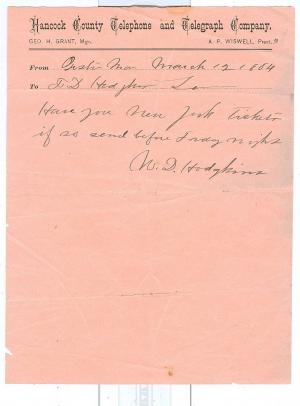 Hancock County Telephone and Telegraph Company.
GEO. H. GRANT, Mgr. A. P. WISWELL, Prest.
From March 12 1884
To T D Hodgkins
Have you New York tickets
if so send before Friday night
W. D. Hodgkins